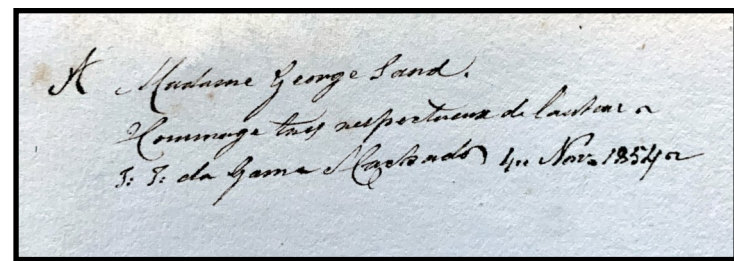 A Madame George Sand.
Hommage très respectueux de l'auteur
J: J: da Gama Machado 4.. Nov. 1854